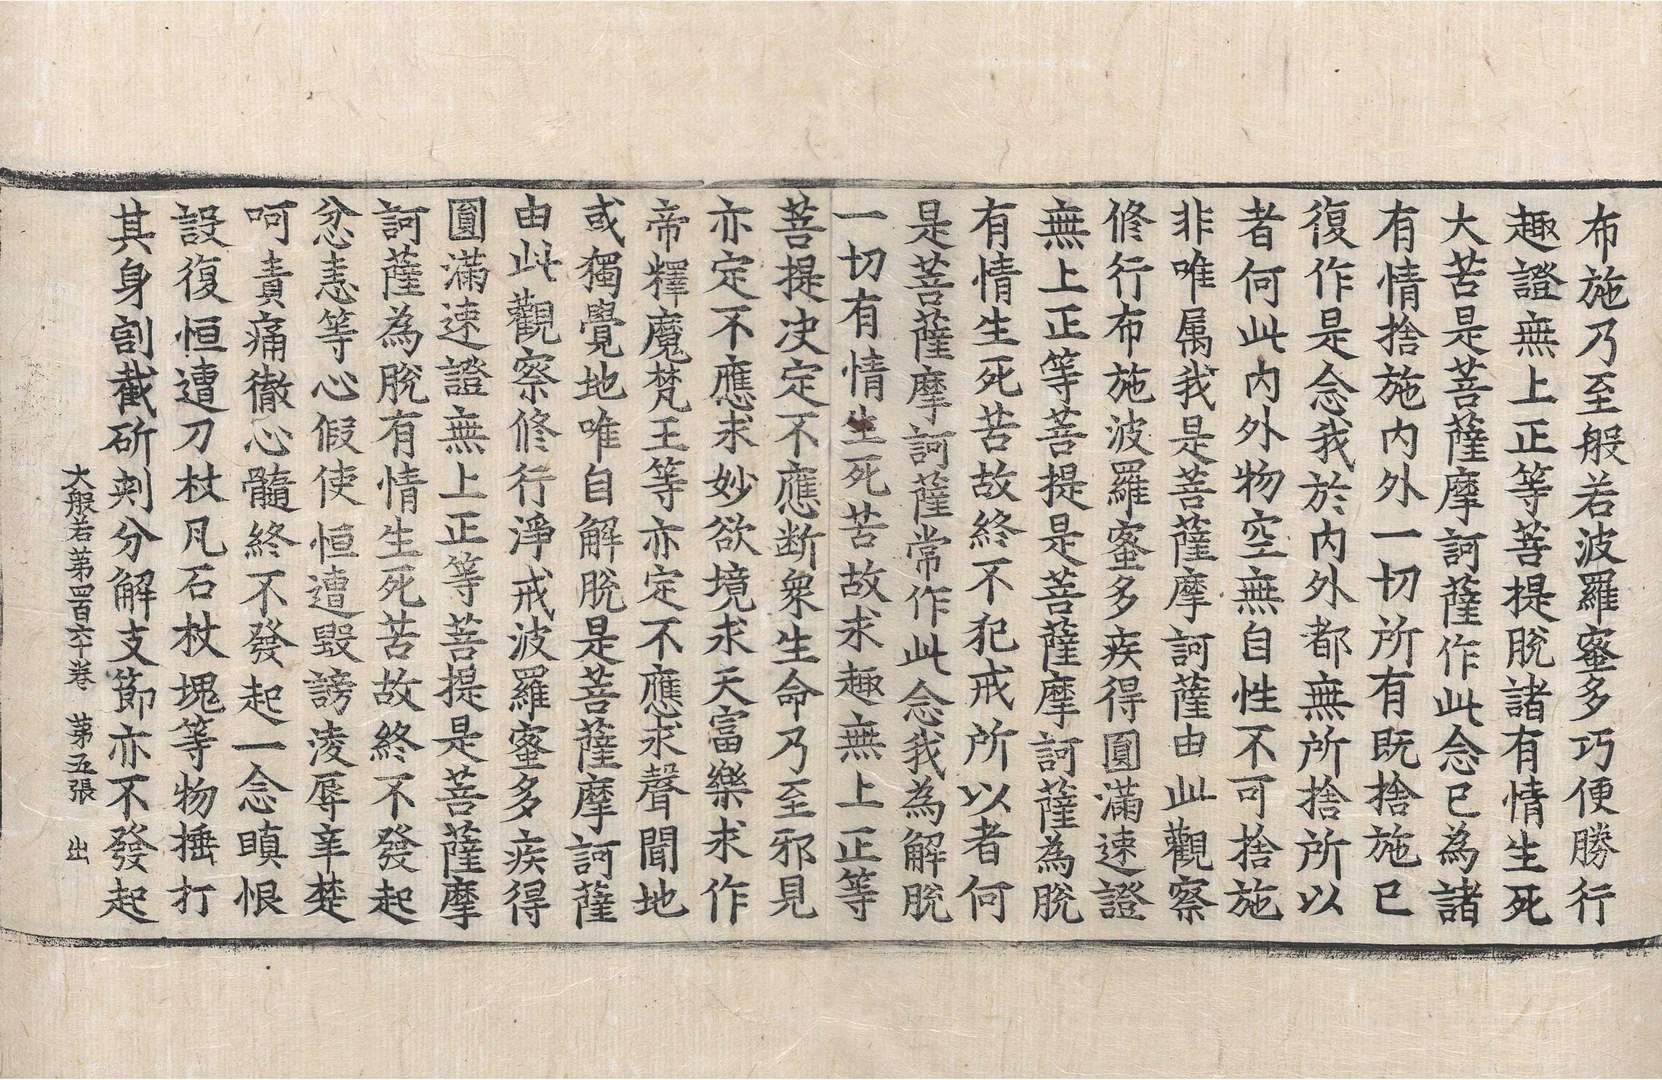 布施乃至般若波羅蜜多巧便勝行
趣證無上正等菩提脫諸有情生死
大苦是菩薩摩訶薩作此念已為諸
有情捨施內外一切所有既捨施已
復作是念我於內外都無所捨所以
者何此內外物空無自性不可捨施
非唯属我是菩薩摩訶薩由此觀察
修行布施波羅蜜多疾得圓滿速證
無上正等菩提是菩薩摩訶薩為脫
有情生死苦故終不犯戒所以者何
是菩薩摩訶薩常作此念我為解脫
一切有情生死苦故求趣無上正等
菩提决定不應断衆生命乃至邪見
亦定不應求妙欲境求天富樂求作
帝釋魔梵王等亦定不應求聲聞地
或獨覺地唯自解脫是菩薩摩訶薩
由此觀察修行淨戒波羅蜜多疾得
圓滿速證無上正等菩提是菩薩摩
訶薩為脫有情生死苦故終不發起
忿恚等心假使恒遭毀謗淩辱辛楚
呵責痛徹心髓終不發起一念瞋恨
設復恒遭刀杖凡石杖塊等物捶打
其身割截斫刺分解支節亦不發起
大般若第四百六十卷 第五張 出